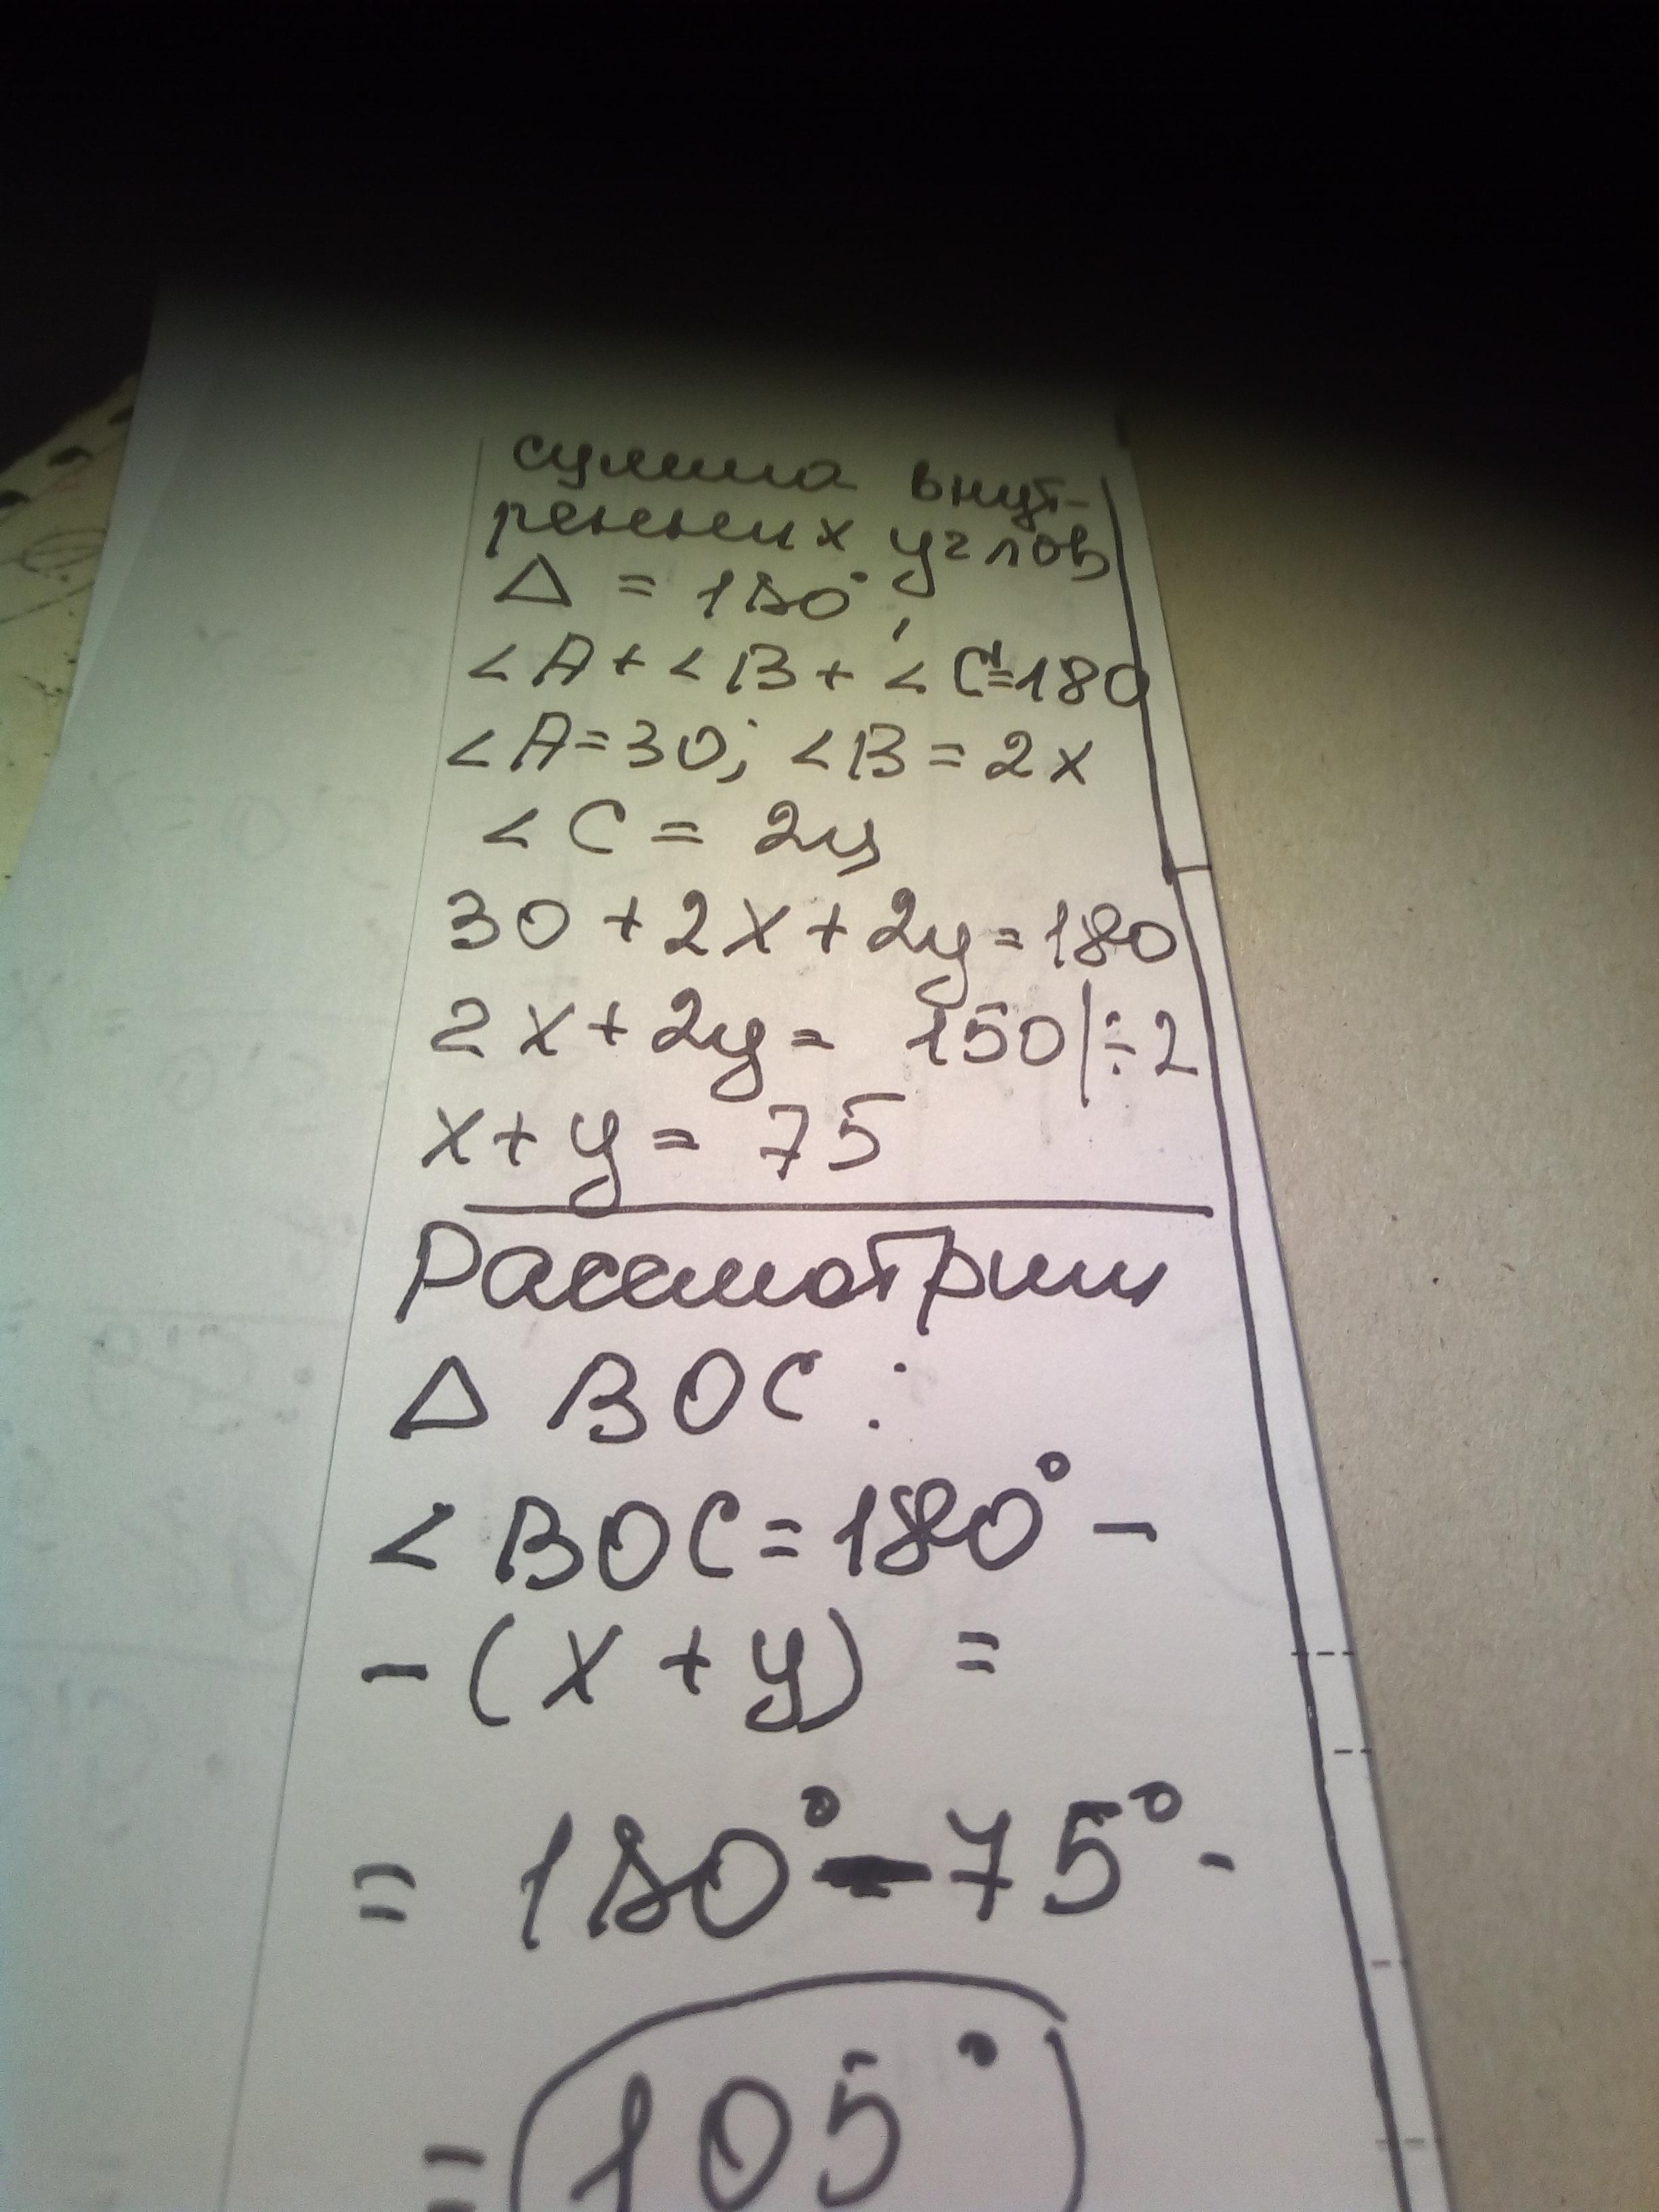 сумма внут-
ренних углов
Δ = 180°,
<A + <B + <C = 180
<A = 30; <B = 2x
<C = 2y
30 + 2x + 2y = 180
2x + 2y = 150 | ÷ 2
x + y = 75
Рассмотрим
Δ BOC :
<BOC = 180° -
- (x + y) =
= 180° - 75° -
= 105°